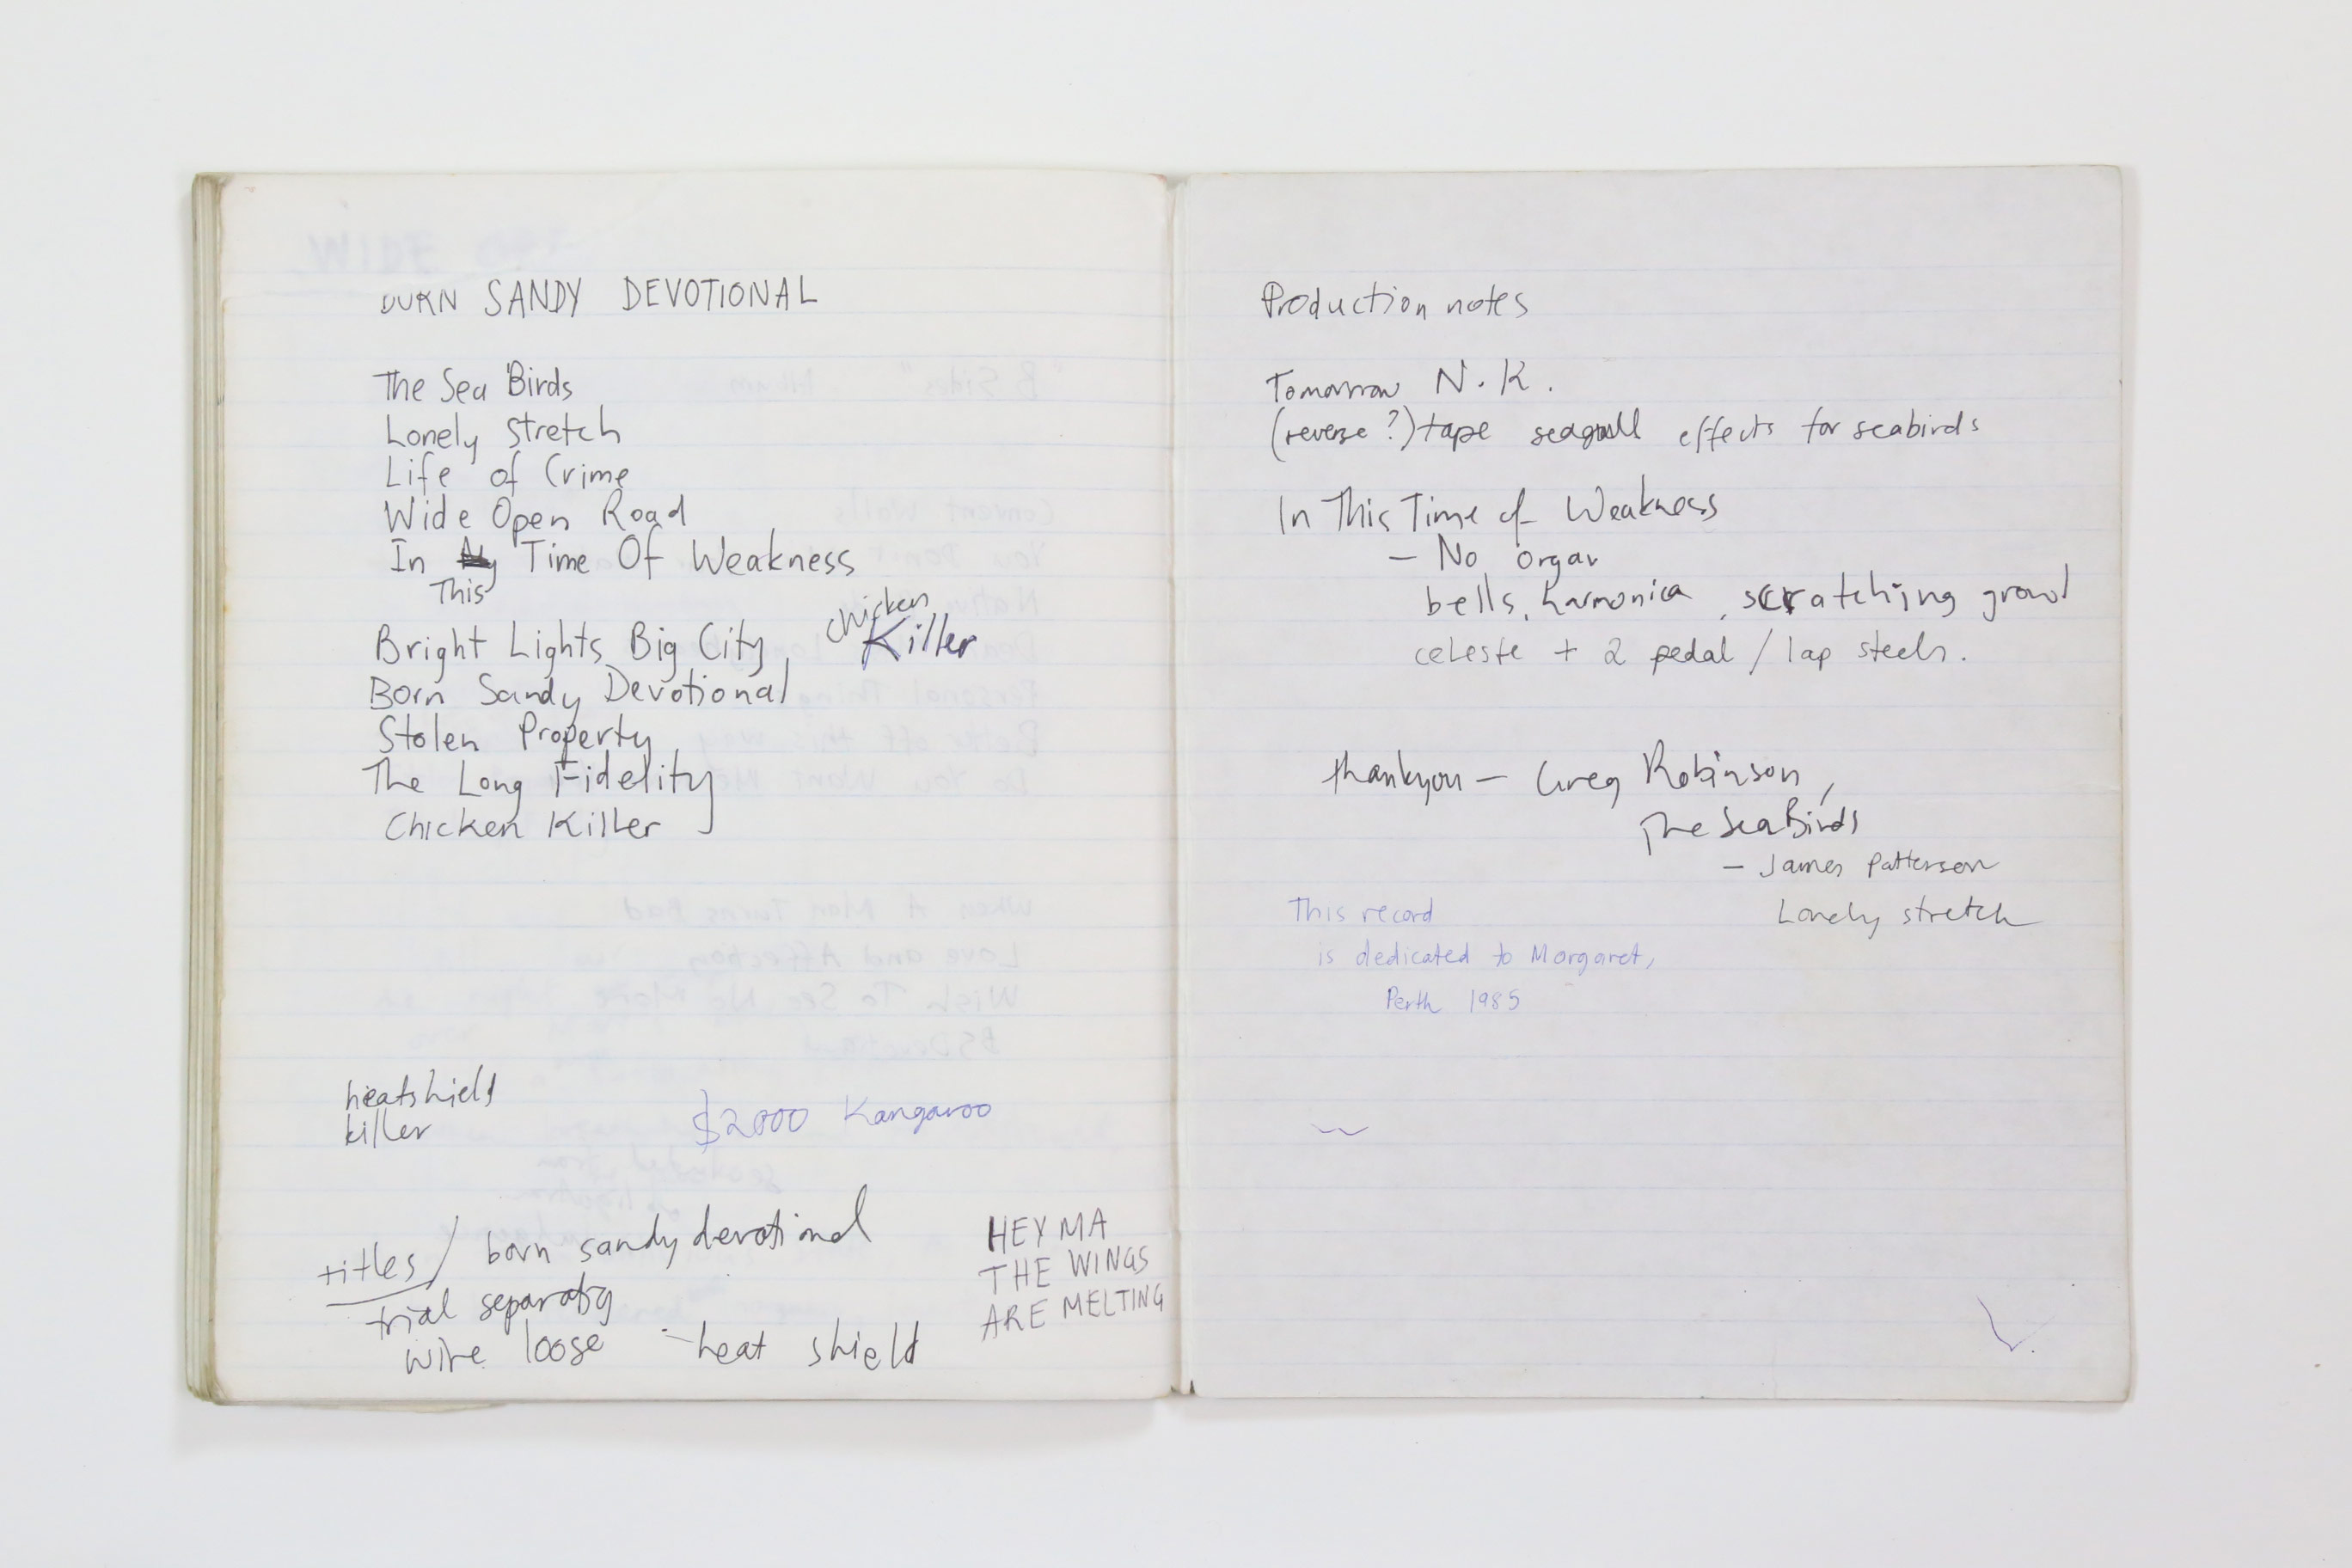 BORN SANDY DEVOTIONAL
The Sea Birds
Lonely Stretch
Life of Crime
Wide Open Road
In My Time Of Weakness
This
Bright Lights Big City, chicken Killer
Born Sandy Devotional
Stolen Property
The Long Fidelity
Chicken Killer
heatshield
killer
$2000 Kangaroo
titles/ born sandy devotional
trial
wire loose - heat shield
HEY MA
THE WINGS
ARE MELTING
Production notes
Tomorrow N.K.
(reverse?) tape seagull effects for seabirds
In This Time of Weakness
- No organ
bells, harmonica, scratching
celeste + 2 pedal / lap steels.
thankyou - Greg Robinson,
The SeaBirds
- James Patterson
Lonely stretch
This record
is dedicated to Margaret,
Perth 1985